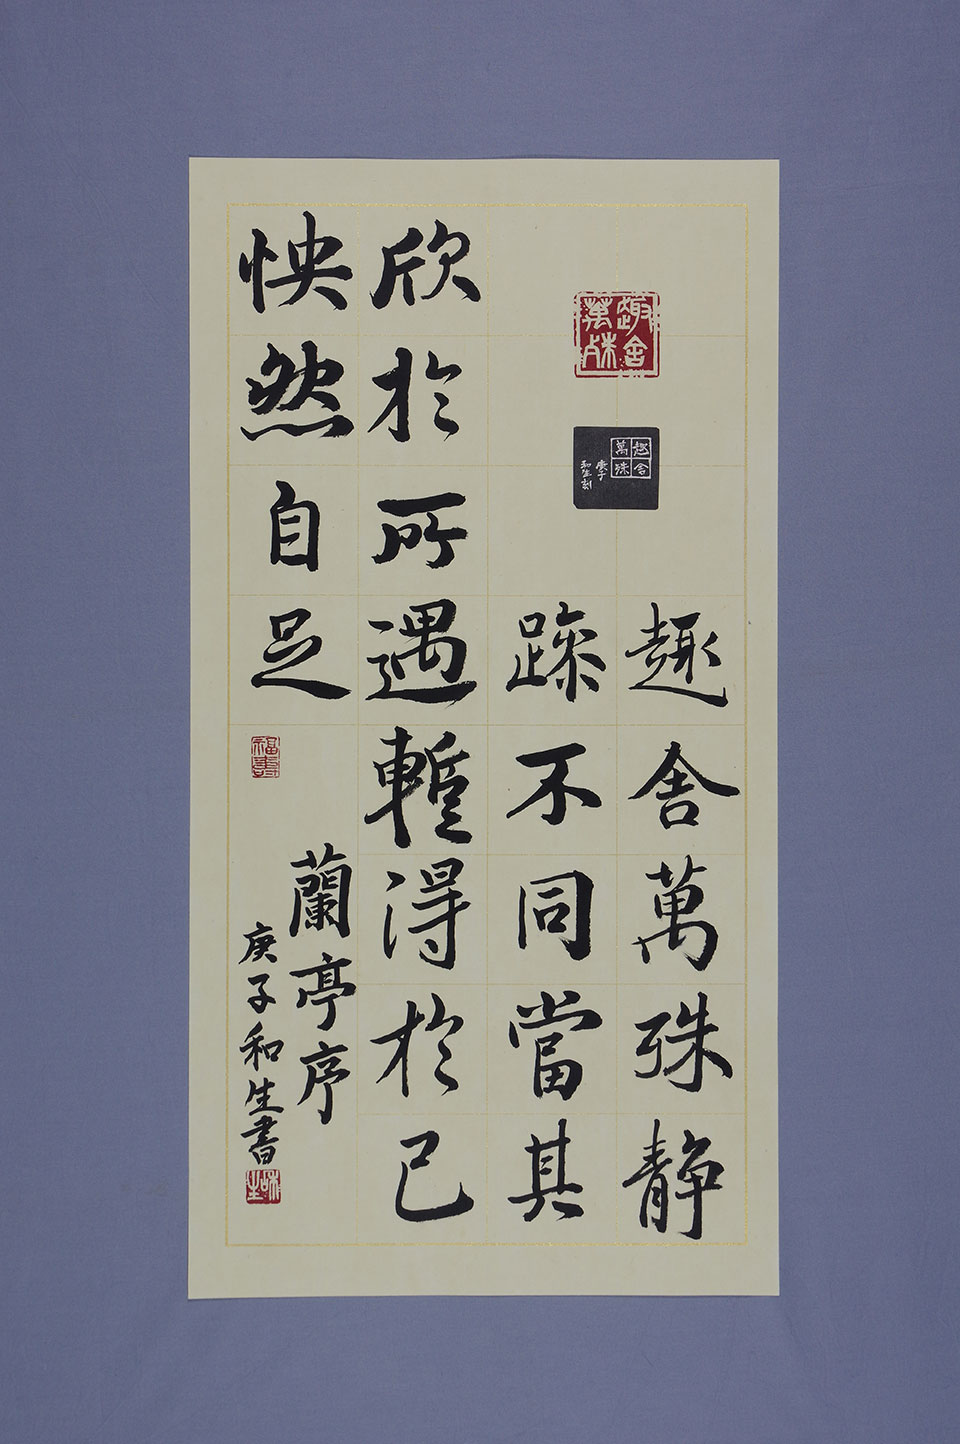 趣舍
萬殊
趣舍
萬殊
庚子
和生刻
趣舍萬殊静
躁不同當其
欣於所遇蹔得於己
怏然自足
蘭亭序
庚子和生書
和生